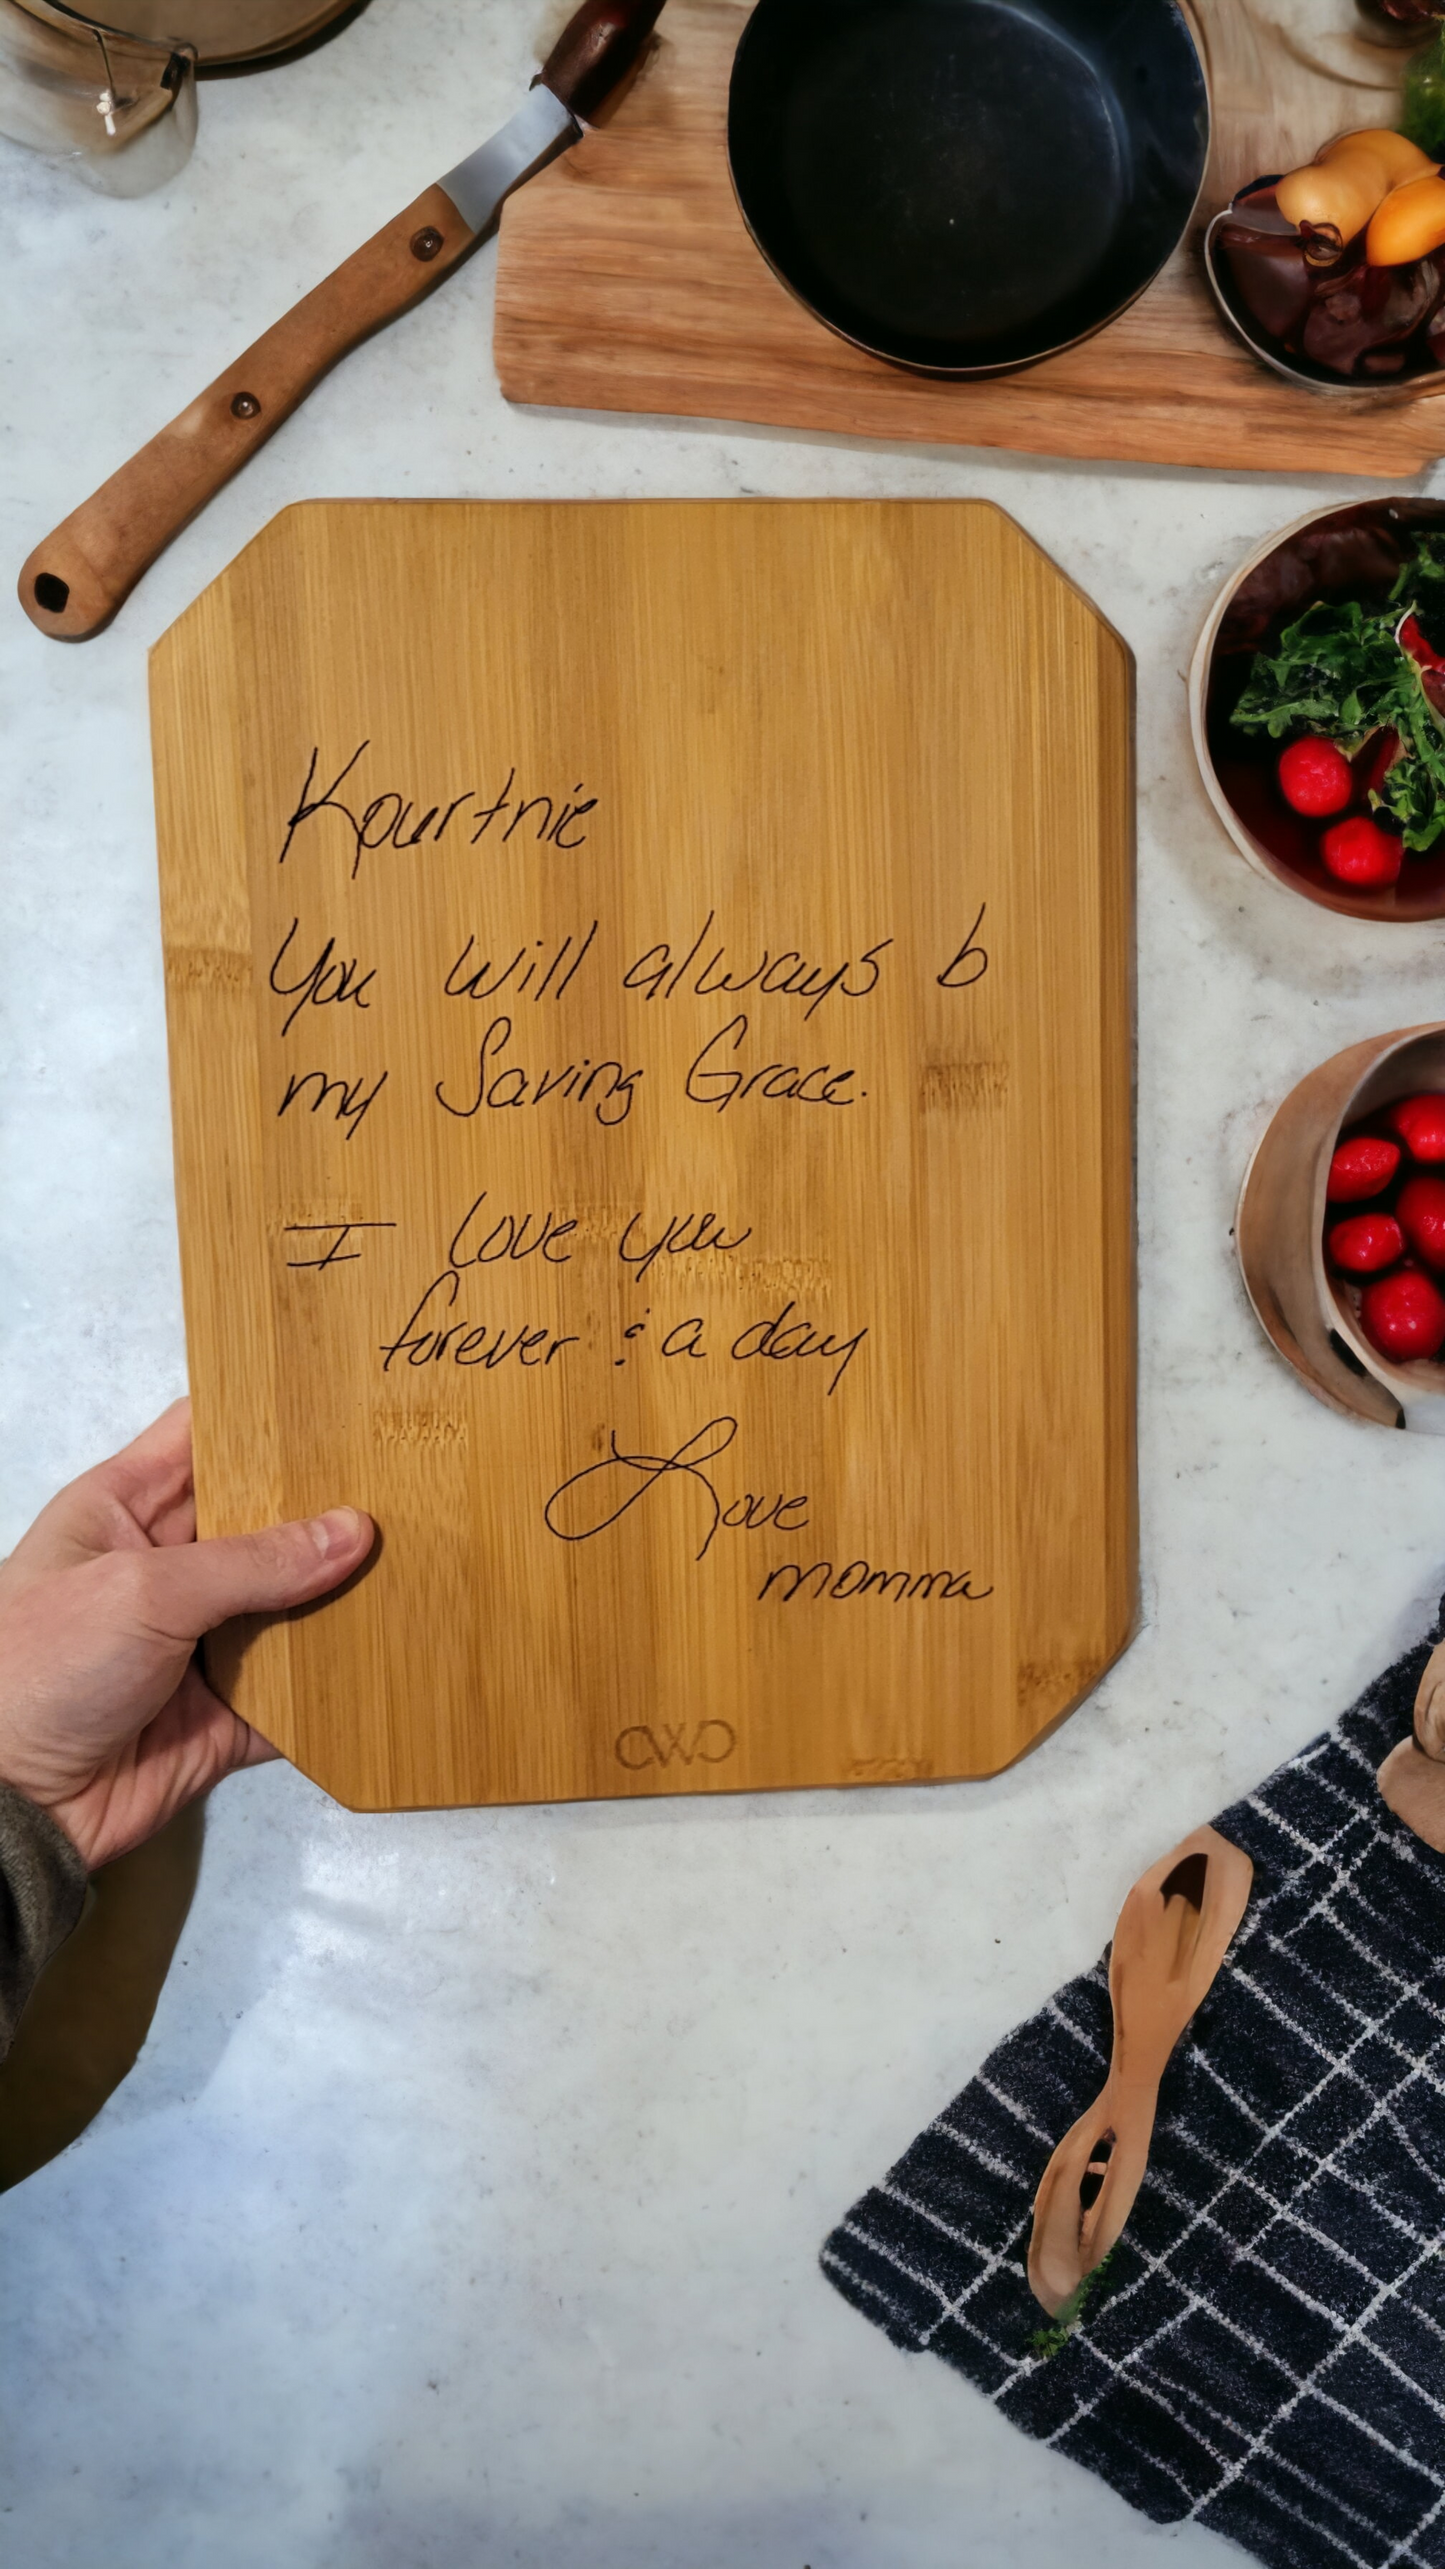 Kourtnie
You will always b
my Saving Grace.
I love you
forever & a day
Love
momma
CWC